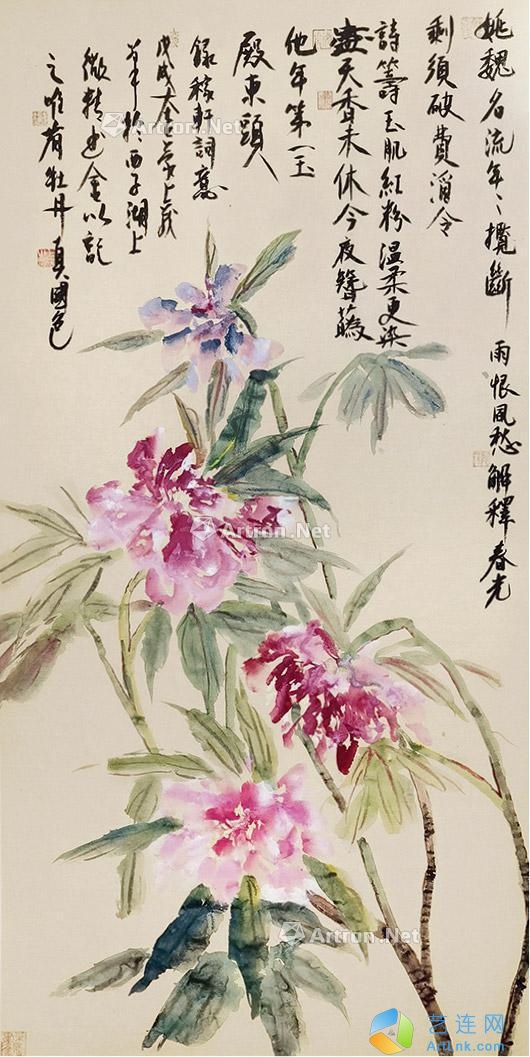 姚魏名流年〻攬斷 雨恨風愁解釋春光
剩須破費酒令
詩籌玉肌紅粉溫柔更染
盡天香未休今夜簪花
他年第一玉
殿東頭
錄稼軒詞意
戊戌大
草於西子湖上
之唯有牡丹真國色
Artron.Net
Artron.Net
Artron.Net
Artron.Net
艺连网
ArtLnk.com